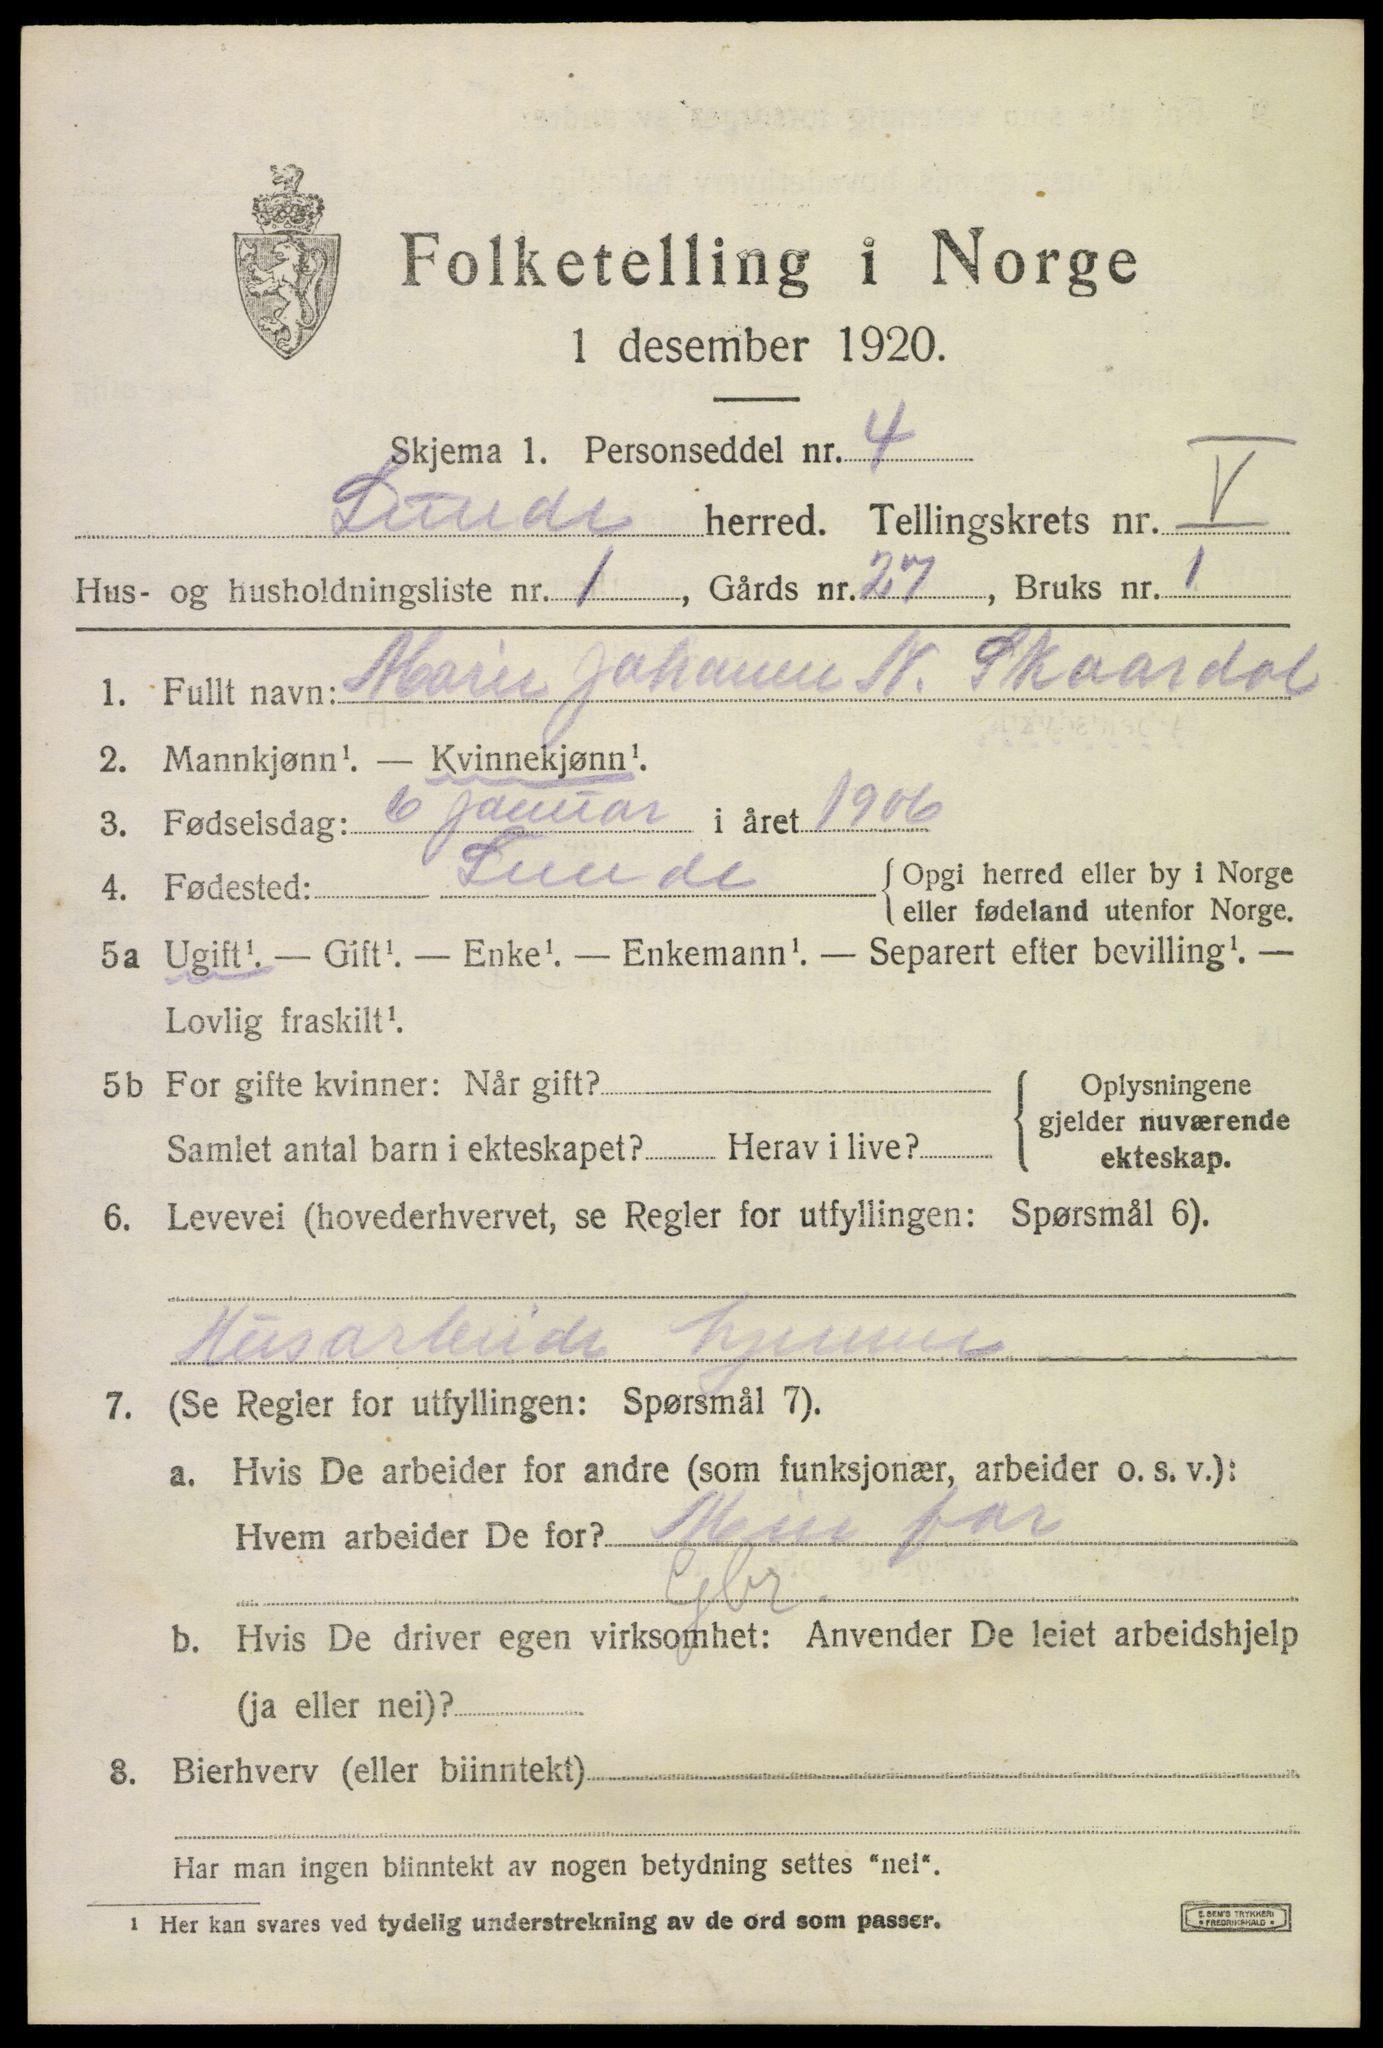 Folketelling i Norge
1 desember 1920.
Skjema 1. Personseddel nr. 4
Lunde herred. Tellingskrets nr. V
Hus- og husholdningsliste nr. 1, Gårds nr. 27, Bruks nr. 1
1. Fullt navn: Marie Johanne N. Skaardal
2. Mannkjønn¹. — Kvinnekjønn¹.
3. Fødselsdag: 6 januar i året 1906
4. Fødested: Lunde { Opgi herred eller by i Norge
eller fødeland utenfor Norge.
5a Ugift¹. — Gift¹. — Enke¹. — Enkemann¹. — Separert efter bevilling¹. —
Lovlig fraskilt¹.
5b For gifte kvinner: Når gift?
Samlet antal barn i ekteskapet? Herav i live?
{ Oplysningene
gjelder nuværende
ekteskap.
6. Levevei (hovederhvervet, se Regler for utfyllingen: Spørsmål 6).
Husarbeide hjemme
7. (Se Regler for utfyllingen: Spørsmål 7).
a. Hvis De arbeider for andre (som funksjonær, arbeider o. s. v.):
Hvem arbeider De for? Min far
Gbr.
b. Hvis De driver egen virksomhet: Anvender De leiet arbeidshjelp
(ja eller nei)?
8. Bierhverv (eller biinntekt)
Har man ingen biinntekt av nogen betydning settes "nei".
¹ Her kan svares ved tydelig understrekning av de ord som passer.
E. SEM'S TRYKKERI
FREDRIKSHALD